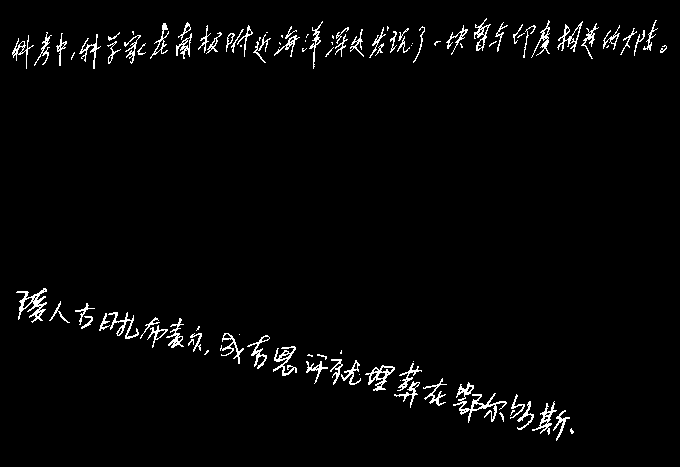 科考中,科学家在南极附近海洋深处发现了一块曾与印度相连的大陆。
陵人古日扎布表示,成吉思汗就埋葬在鄂尔多斯.